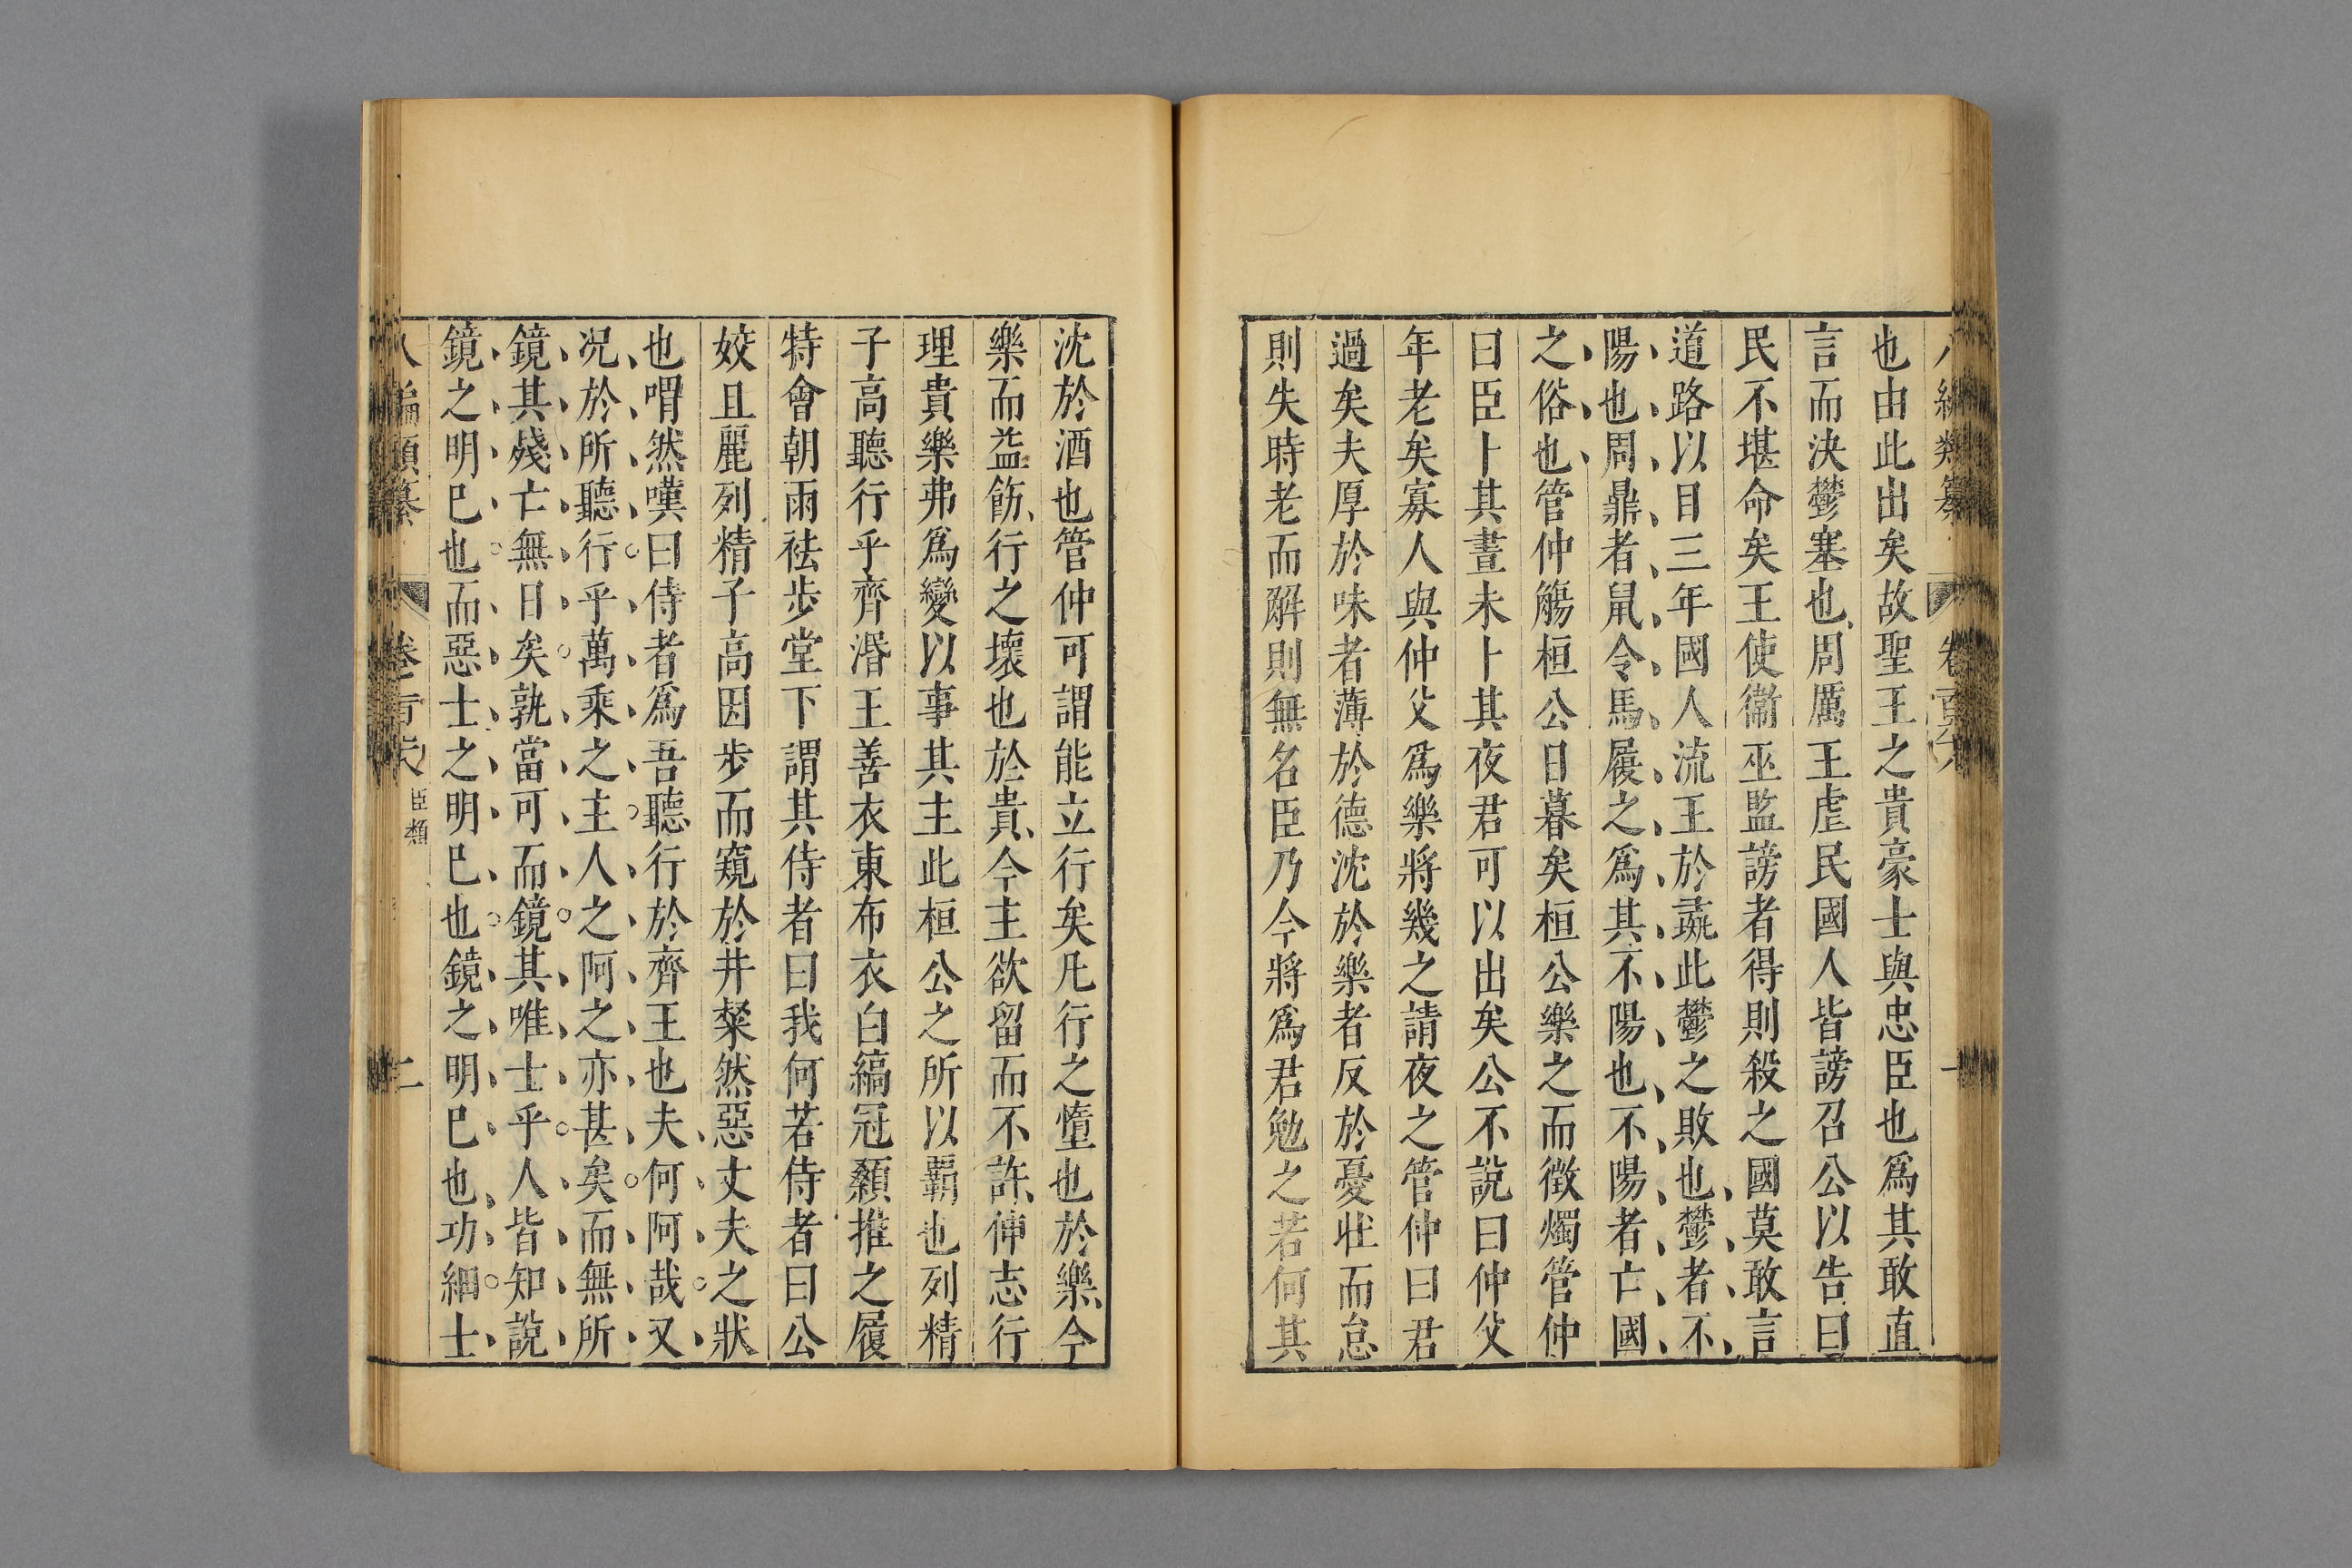 八編類纂 卷百六 一
也由此出矣故聖王之貴豪士與忠臣也爲其敢直
言而決鬱塞也周厲王虐民國人皆謗召公以告曰
民不堪命矣王使衞巫監謗者得則殺之國莫敢言
道路以目三年國人流王於彘此鬱之敗也鬱者不
陽也周鼎者鼠令馬履之爲其不陽也不陽者亡國
之俗也管仲觴桓公日暮矣桓公樂之而徵燭管仲
曰臣卜其晝未卜其夜君可以出矣公不說曰仲父
年老矣寡人與仲父爲樂將幾之請夜之管仲曰君
過矣夫厚於味者薄於德沈於樂者反於憂壯而怠
則失時老而解則無名臣乃今將爲君勉之若何其
沈於酒也管仲可謂能立行矣凡行之墮也於樂今
樂而益飭行之壞也於貴今主欲留而不許伸志行
理貴樂弗爲變以事其主此桓公之所以霸也列精
子高聽行乎齊湣王善衣東布衣白縞冠顙推之履
特會朝雨袪步堂下謂其侍者曰我何若侍者曰公
姣且麗列精子高因步而窺於井粲然惡丈夫之狀
也喟然嘆曰侍者爲吾聽行於齊王也夫何阿哉又
况於所聽行乎萬乘之主人之阿之亦甚矣而無所
鏡其殘亡無日矣孰當可而鏡其唯士乎人皆知說
鏡之明巳也而惡士之明巳也鏡之明巳也功細士
八編類纂 卷百六 臣類 二